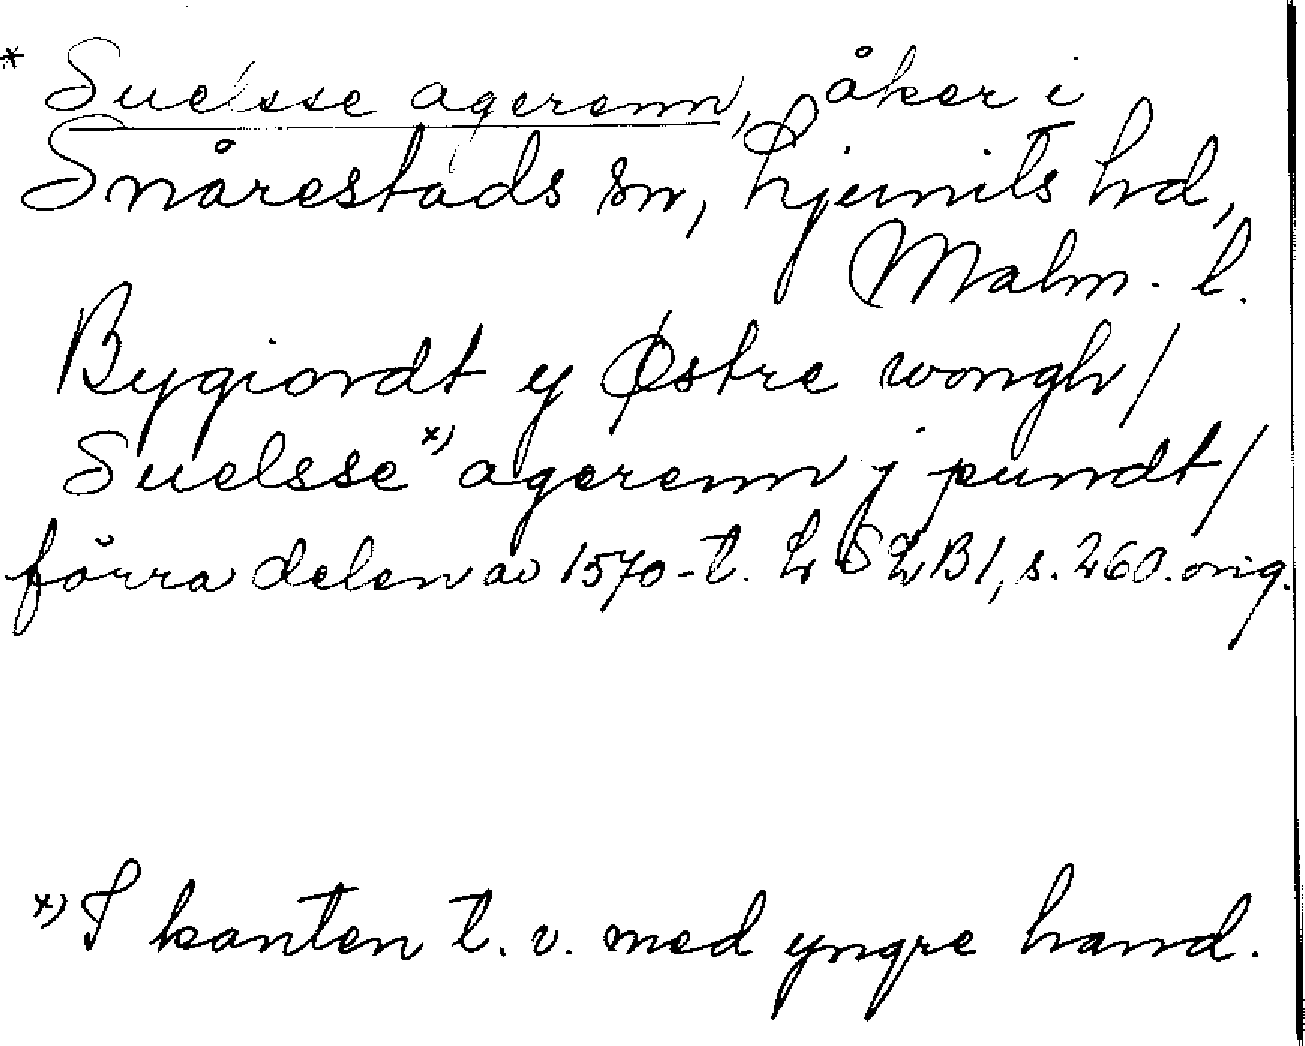 * Suelsse agerenn, åker i
Snårestads sn, Ljunits hd,
Malm. l.
Bygiordt y Østre wongh/
Suelsse x) agerenn j pundt/
förra delen av 1570-t. LSLB1, s. 260. orig.
x) I kanten t. v. med yngre hand.